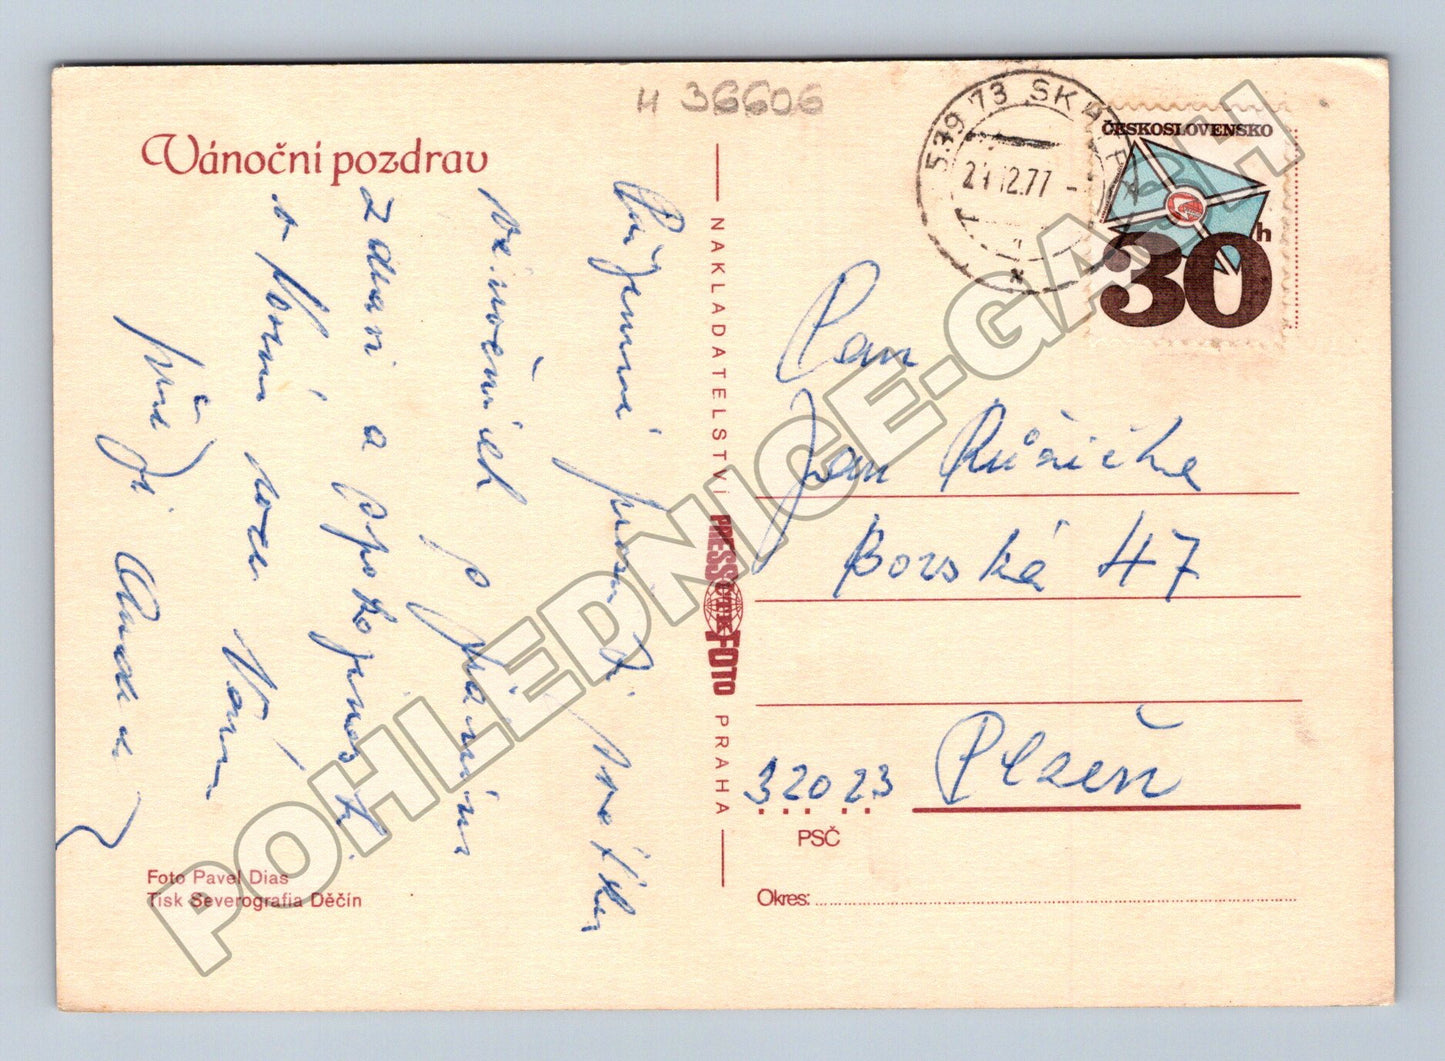 H 36606
Vánoční pozdrav
Příjemné prožití
vánočních
s přáním
zdraví a spokojenosti
v Novém roce Vám
přeje
NAKLADATELSTVÍ PRESSFOTO PRAHA
539 73 SKA
12.77
ČESKOSLOVENSKO
30h
Pan
Jan Růžička
Borská 47
32023 Plzeň
PSČ
Okres:
Foto Pavel Dias
Tisk Severografia Děčín
POHLEDNICE-GASH